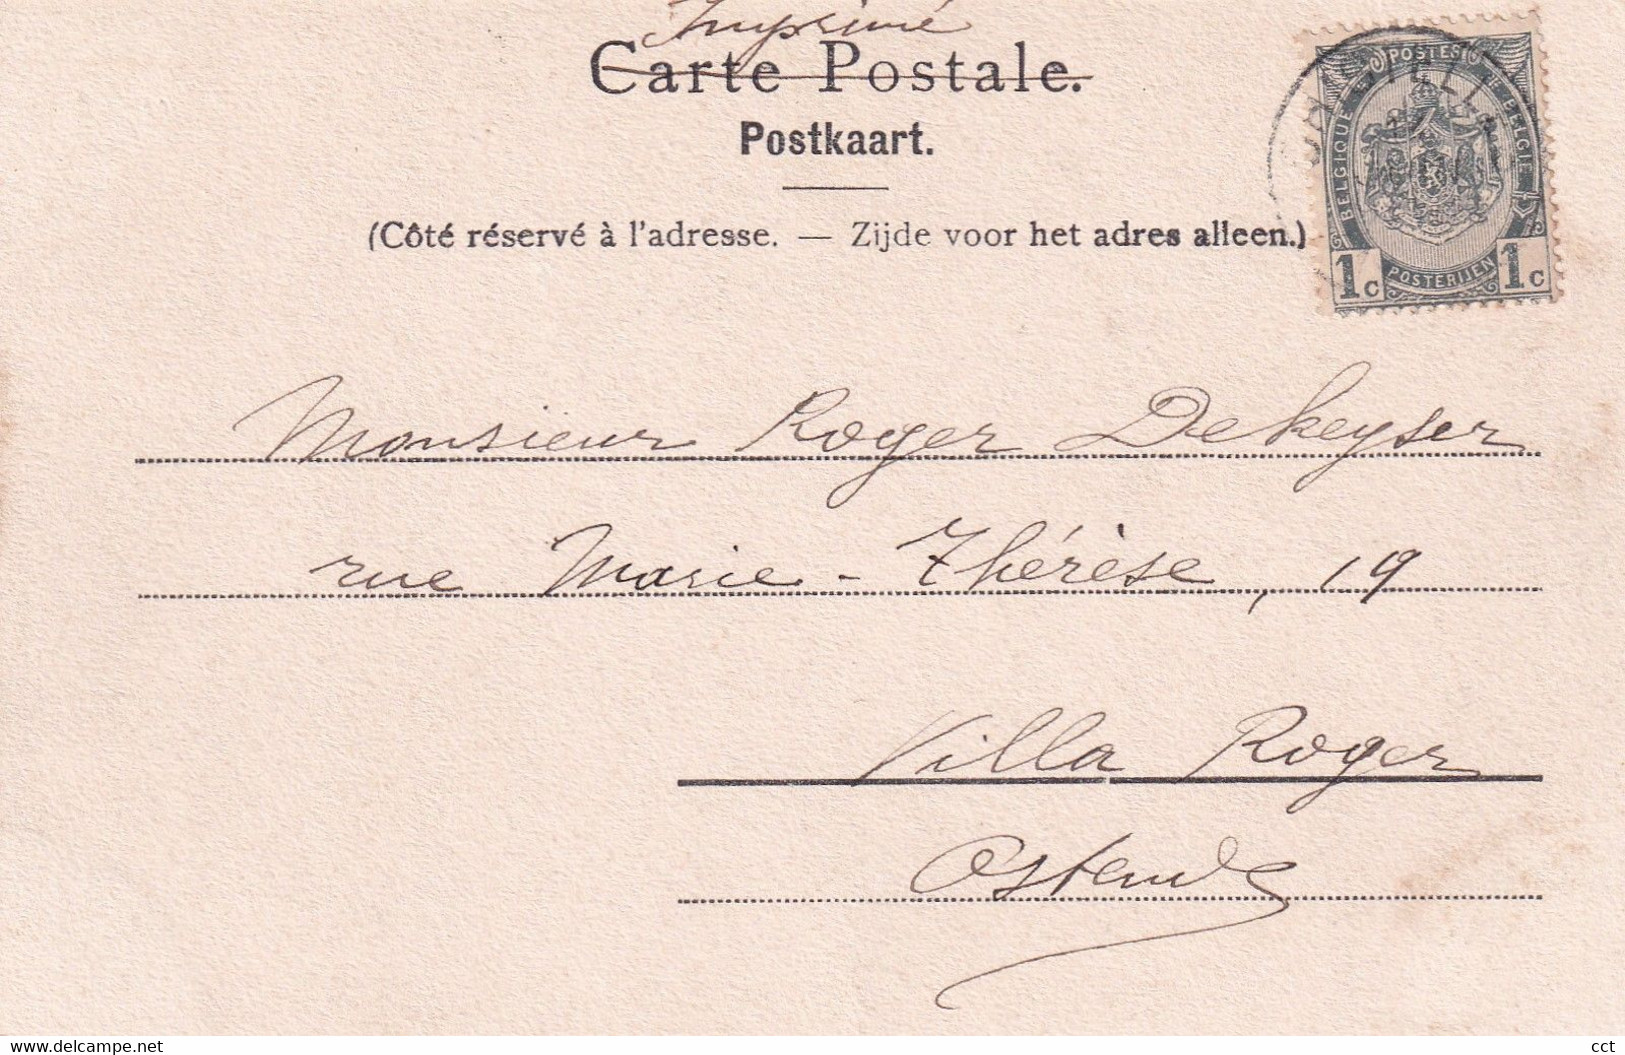 Imprimé
Carte Postale.
Postkaart.
(Côté réservé à l'adresse. — Zijde voor het adres alleen.)
POSTES
BELGIQUE
BELGIE
1c POSTERIJEN 1c
Monsieur Roger Dekeyser
rue Marie-Thérèse, 19
Villa Roger
Ostende
www.delcampe.net
cct